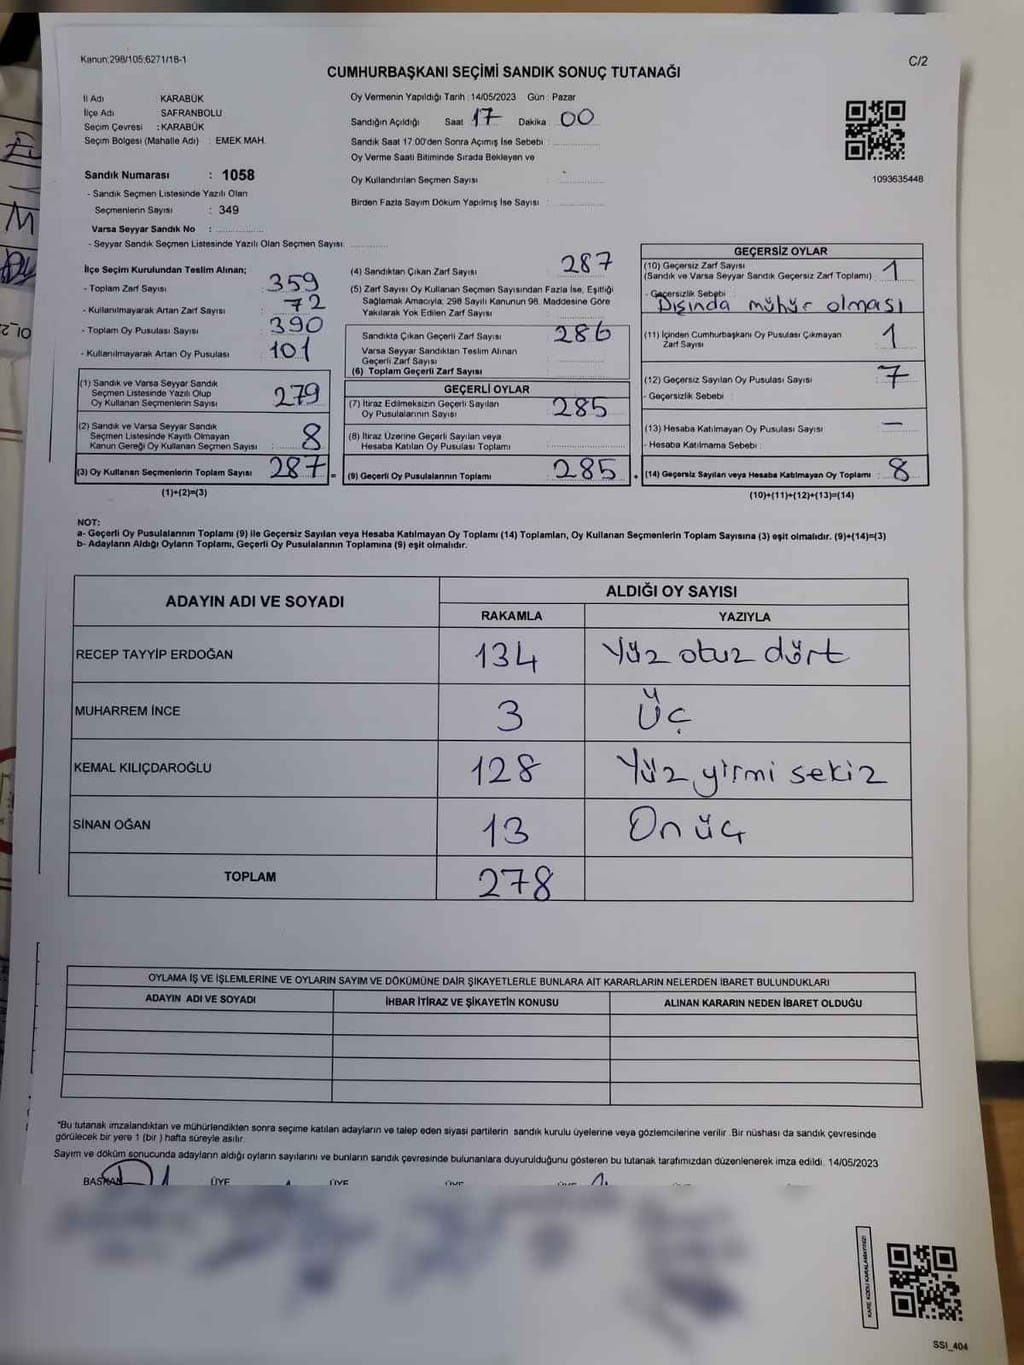 Kanun:298/105;6271/18-1
C/2
CUMHURBAŞKANI SEÇİMİ SANDIK SONUÇ TUTANAĞI
İl Adı : KARABÜK
İlçe Adı SAFRANBOLU
Seçim Çevresi : KARABÜK
Seçim Bölgesi (Mahalle Adı) : EMEK MAH.
Sandık Numarası : 1058
- Sandık Seçmen Listesinde Yazılı Olan
Seçmenlerin Sayısı : 349
Varsa Seyyar Sandık No :
- Seyyar Sandık Seçmen Listesinde Yazılı Olan Seçmen Sayısı:
Oy Vermenin Yapıldığı Tarih :14/05/2023 Gün : Pazar
Sandığın Açıldığı Saat 17 Dakika 00
Sandık Saat 17:00'den Sonra Açımış İse Sebebi :
Oy Verme Saati Bitiminde Sırada Bekleyen ve
Oy Kullandırılan Seçmen Sayısı :
Birden Fazla Sayım Döküm Yapılmış İse Sayısı :
1093635448
İlçe Seçim Kurulundan Teslim Alınan;
- Toplam Zarf Sayısı : 359
- Kullanılmayarak Artan Zarf Sayısı : 72
- Toplam Oy Pusulası Sayısı : 390
- Kullanılmayarak Artan Oy Pusulası : 101
(1) Sandık ve Varsa Seyyar Sandık
Seçmen Listesinde Yazılı Olup
Oy Kullanan Seçmenlerin Sayısı : 279
(2) Sandık ve Varsa Seyyar Sandık
Seçmen Listesinde Kayıtlı Olmayan
Kanun Gereği Oy Kullanan Seçmen Sayısı : 8
(3) Oy Kullanan Seçmenlerin Toplam Sayısı : 287 =
(1)+(2)=(3)
(4) Sandıktan Çıkan Zarf Sayısı : 287
(5) Zarf Sayısı Oy Kullanan Seçmen Sayısından Fazla İse, Eşitliği
Sağlamak Amacıyla; 298 Sayılı Kanunun 98. Maddesine Göre
Yakılarak Yok Edilen Zarf Sayısı :
Sandıkta Çıkan Geçerli Zarf Sayısı : 286
Varsa Seyyar Sandıktan Teslim Alınan
Geçerli Zarf Sayısı :
(6) Toplam Geçerli Zarf Sayısı :
GEÇERLİ OYLAR
(7) İtiraz Edilmeksizin Geçerli Sayılan
Oy Pusulalarının Sayısı : 285
(8) İtiraz Üzerine Geçerli Sayılan veya
Hesaba Katılan Oy Pusulası Toplamı :
(9) Geçerli Oy Pusulalarının Toplamı : 285 +
GEÇERSİZ OYLAR
(10) Geçersiz Zarf Sayısı
(Sandık ve Varsa Seyyar Sandık Geçersiz Zarf Toplamı) : 1
- Geçersizlik Sebebi :
Dışında mühür olması
(11) İçinden Cumhurbaşkanı Oy Pusulası Çıkmayan
Zarf Sayısı : 1
(12) Geçersiz Sayılan Oy Pusulası Sayısı : 7
- Geçersizlik Sebebi :
(13) Hesaba Katılmayan Oy Pusulası Sayısı : —
- Hesaba Katılmama Sebebi :
(14) Geçersiz Sayılan veya Hesaba Katılmayan Oy Toplamı : 8
(10)+(11)+(12)+(13)=(14)
NOT:
a- Geçerli Oy Pusulalarının Toplamı (9) ile Geçersiz Sayılan veya Hesaba Katılmayan Oy Toplamı (14) Toplamları, Oy Kullanan Seçmenlerin Toplam Sayısına (3) eşit olmalıdır. (9)+(14)=(3)
b- Adayların Aldığı Oyların Toplamı, Geçerli Oy Pusulalarının Toplamına (9) eşit olmalıdır.
ADAYIN ADI VE SOYADI
ALDIĞI OY SAYISI
RAKAMLA YAZIYLA
RECEP TAYYİP ERDOĞAN 134 Yüz otuz dört
MUHARREM İNCE 3 Üç
KEMAL KILIÇDAROĞLU 128 Yüz yirmi sekiz
SİNAN OĞAN 13 On üç
TOPLAM 278
OYLAMA İŞ VE İŞLEMLERİNE VE OYLARIN SAYIM VE DÖKÜMÜNE DAİR ŞİKAYETLERLE BUNLARA AİT KARARLARIN NELERDEN İBARET BULUNDUKLARI
ADAYIN ADI VE SOYADI İHBAR İTİRAZ VE ŞİKAYETİN KONUSU ALINAN KARARIN NEDEN İBARET OLDUĞU
*Bu tutanak imzalandıktan ve mühürlendikten sonra seçime katılan adayların ve talep eden siyasi partilerin sandık kurulu üyelerine veya gözlemcilerine verilir. Bir nüshası da sandık çevresinde
görülecek bir yere 1 (bir ) hafta süreyle asılır.
Sayım ve döküm sonucunda adayların aldığı oyların sayılarını ve bunların sandık çevresinde bulunanlara duyurulduğunu gösteren bu tutanak tarafımızdan düzenlenerek imza edildi. 14/05/2023
BAŞKAN ÜYE ÜYE ÜYE ÜYE
KARE KODU KARALAMAYINIZ!
SSI_404